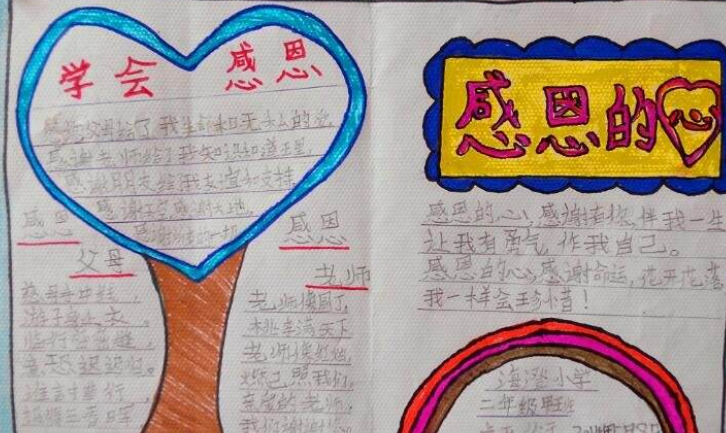 学会 感恩
感谢父母给了我生命和无私的爱,
感谢老师给了我知识和道理,
感谢朋友给我友谊和支持
感恩
父母
慈母手中线,
游子身上衣,
临行密密缝,
意恐迟迟归。
谁言寸草
感恩
老师
老师像园丁
桃李满天下
老师像红烛,
照我们,
亲爱的老师,
感恩的心
感恩的心,感谢有你,伴我一生
让我有勇气作我自己。
感恩的心,感谢命运,花开花落
我一样会珍惜!
海澄小学
二年级